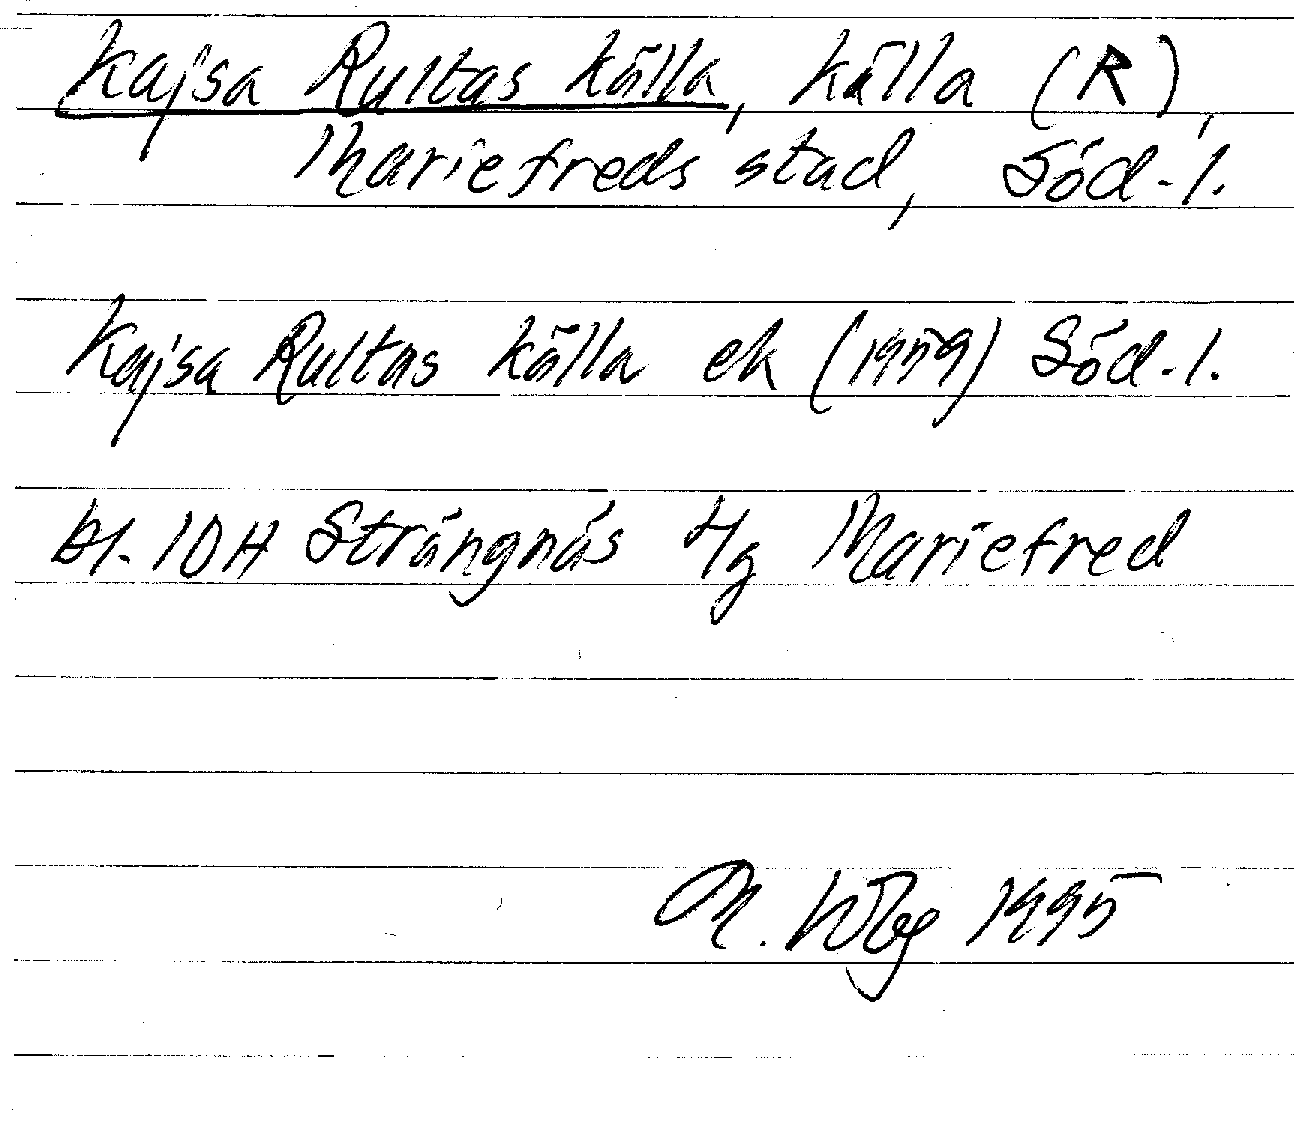 Kajsa Rultas källa, källa (R),
Mariefreds stad, Söd.l.
Kajsa Rultas källa ek (1959) Söd.l.
bl. 10H Strängnäs 4g Mariefred
1995